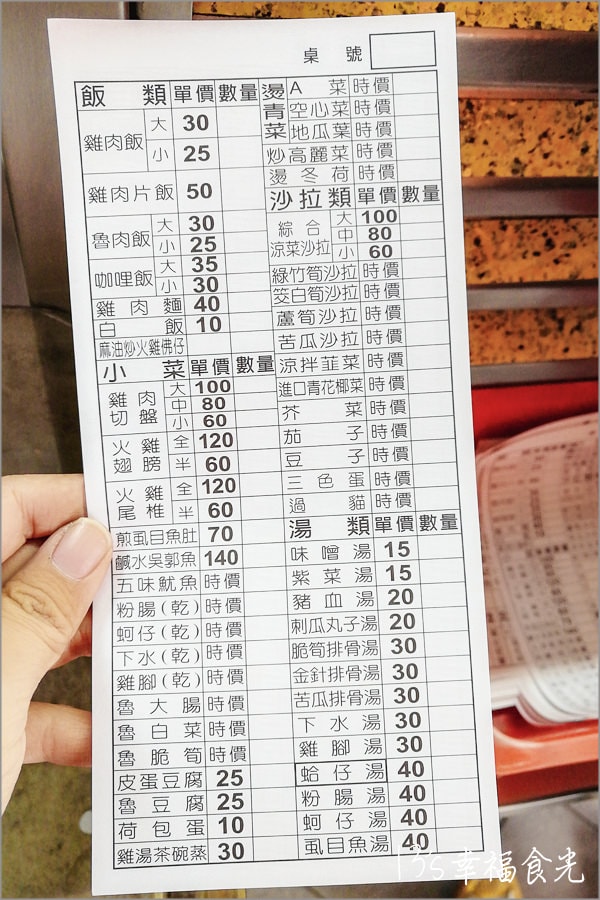 桌號
飯類 單價 數量
雞肉飯 大 30
小 25
雞肉片飯 50
魯肉飯 大 30
小 25
咖哩飯 大 35
小 30
雞肉麵 40
白飯 10
麻油炒火雞佛仔
小菜 單價 數量
雞肉切盤 大 100
中 80
小 60
火雞翅膀 全 120
半 60
火雞尾椎 全 120
半 60
煎虱目魚肚 70
鹹水吳郭魚 140
五味魷魚 時價
粉腸(乾) 時價
蚵仔(乾) 時價
下水(乾) 時價
雞腳(乾) 時價
魯大腸 時價
魯白菜 時價
魯脆筍 時價
皮蛋豆腐 25
魯豆腐 25
荷包蛋 10
雞湯茶碗蒸 30
燙青菜 A菜 時價
空心菜 時價
地瓜葉 時價
炒高麗菜 時價
燙冬荷 時價
沙拉類 單價 數量
綜合涼菜沙拉 大 100
中 80
小 60
綠竹筍沙拉 時價
筊白筍沙拉 時價
蘆筍沙拉 時價
苦瓜沙拉 時價
涼拌韮菜 時價
進口青花椰菜 時價
芥菜 時價
茄子 時價
豆子 時價
三色蛋 時價
過貓 時價
湯類 單價 數量
味噌湯 15
紫菜湯 15
豬血湯 20
刺瓜丸子湯 20
脆筍排骨湯 30
金針排骨湯 30
苦瓜排骨湯 30
下水湯 30
雞腳湯 30
蛤仔湯 40
粉腸湯 40
蚵仔湯 40
虱目魚湯 40
幸福食光